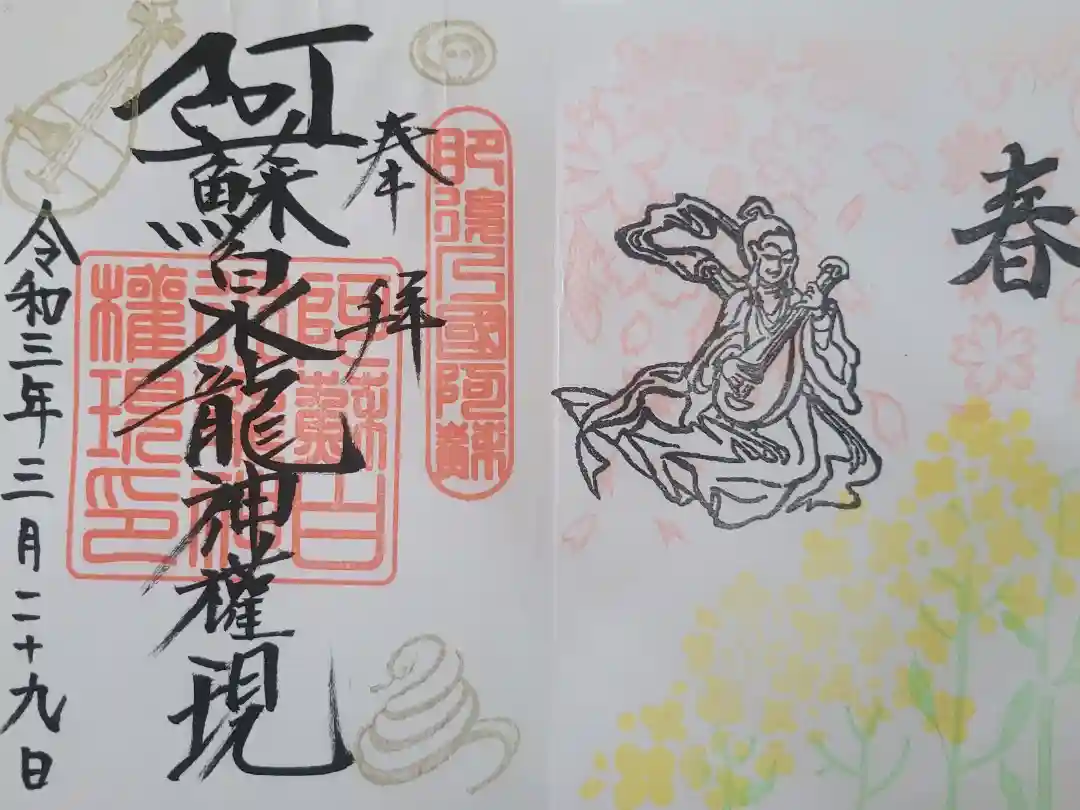 春
奉拝
肥後乃國阿蘇
阿蘇白水龍神權現
阿蘇白
水龍神
權現印
令和三年三月二十九日